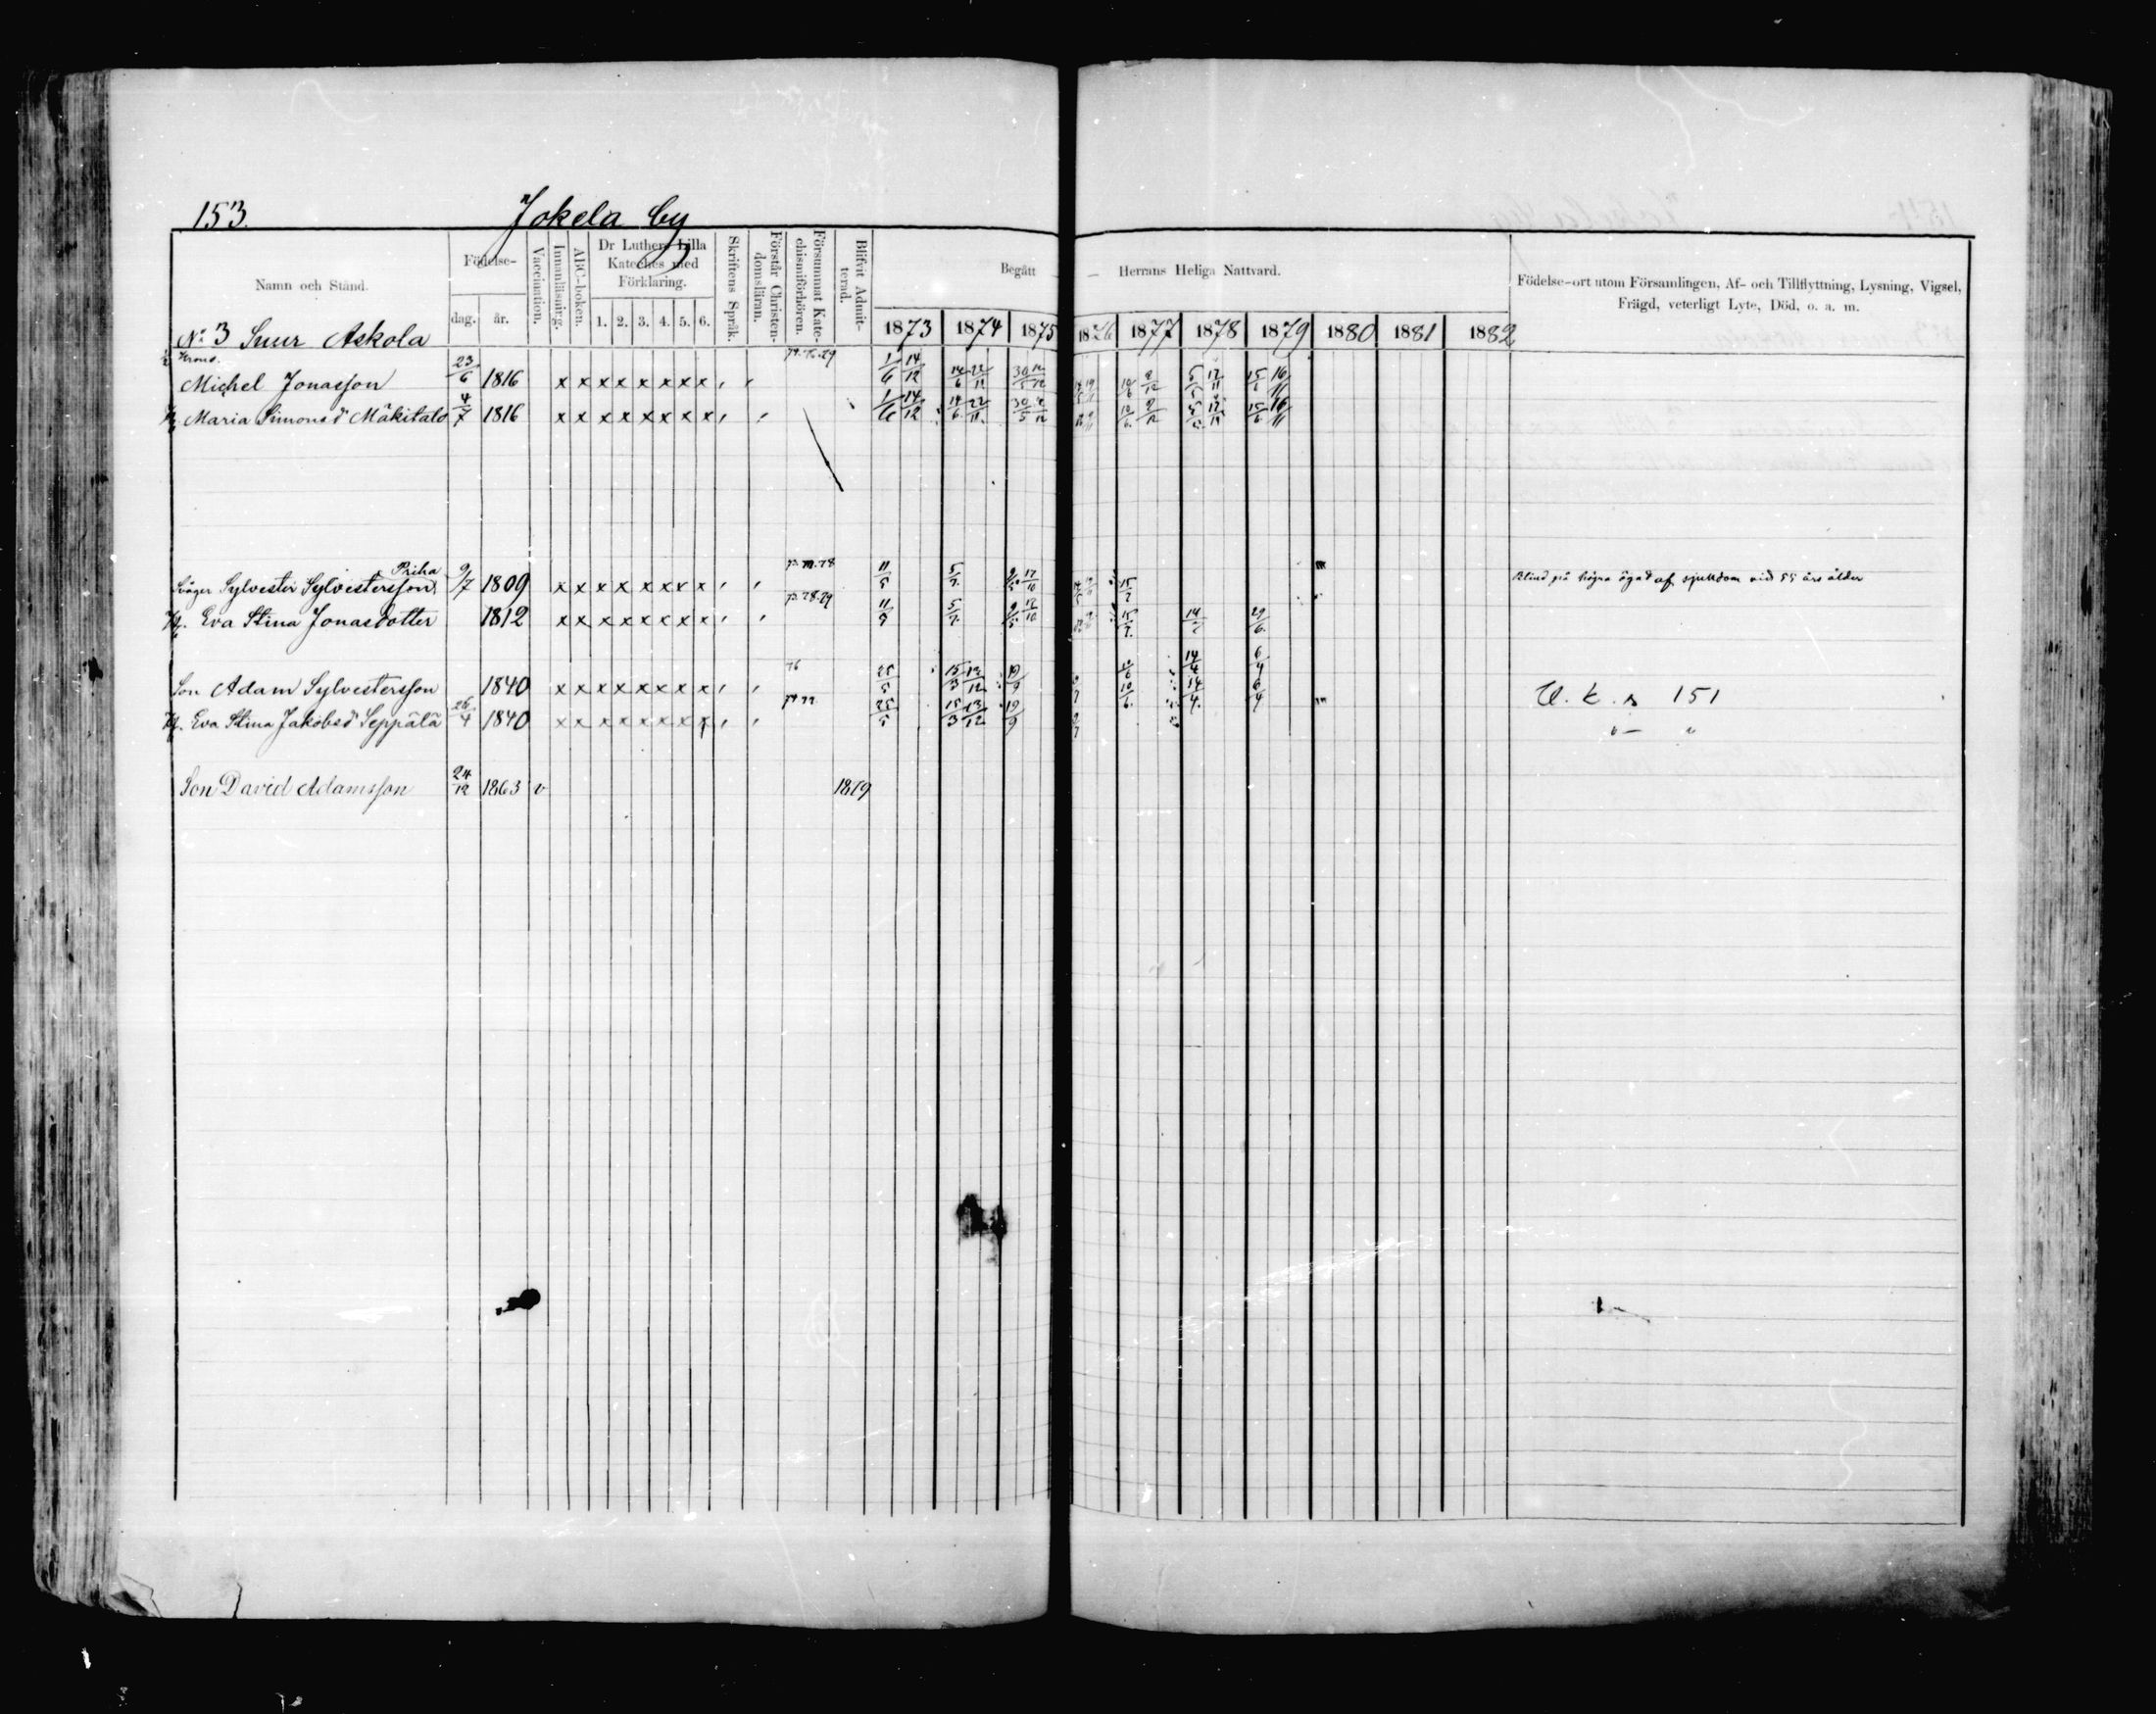 153.
Jokela by
Namn och Stånd.
Födelse-
dag.
år.
Vaccination.
Innanläsning.
ABC-boken.
Dr Luthers Lilla
Kateches med
Förklaring.
1. 2. 3. 4. 5. 6.
Skriftens Språk.
Förstår Christen-
domsläran.
Försummat Kate-
chismiförhören.
Blifvit Admit-
terad.
Begått — Herrans Heliga Nattvard.
1873 1874 1875 1876 1877 1878 1879 1880 1881 1882
Födelse-ort utom Församlingen, Af- och Tillflyttning, Lysning, Vigsel,
Frägd, veterligt Lyte, Död, o. a. m.
No 3 Suur Askola
Michel Jonasson 23/6 1816 x x x x x x x x 1/6 14/12 14/6 22/11 5/5 12/11 15/6 16/11
Maria Simonsd Mäkitalo 4/7 1816 x x x x x x x x 1/6 14/12 14/6 22/11 30/5 15/6 16/11
Priha
Svåger Sylvester Sylvestersson 9/7 1809 x x x x x x x x 11/5 5/7 9/5 17/10 15/7 Blind på högra ögat af sjukdom vid 55 års ålder
Eva Stina Jonasdotter 1812 x x x x x x x x 11/5 5/7 9/5 15/7 14/7 29/6
76
Son Adam Sylvestersson 1840 x x x x x x x x 25/5 15/3 13/12 19/9 14/4 6/4 151
Eva Stina Jakobsd Seppälä 26/4 1840 x x x x x x x x 25/5 15/3 13/12 19/9 10/6 14/4 6/4
Son David Adamsson 24/12 1863 v 1879